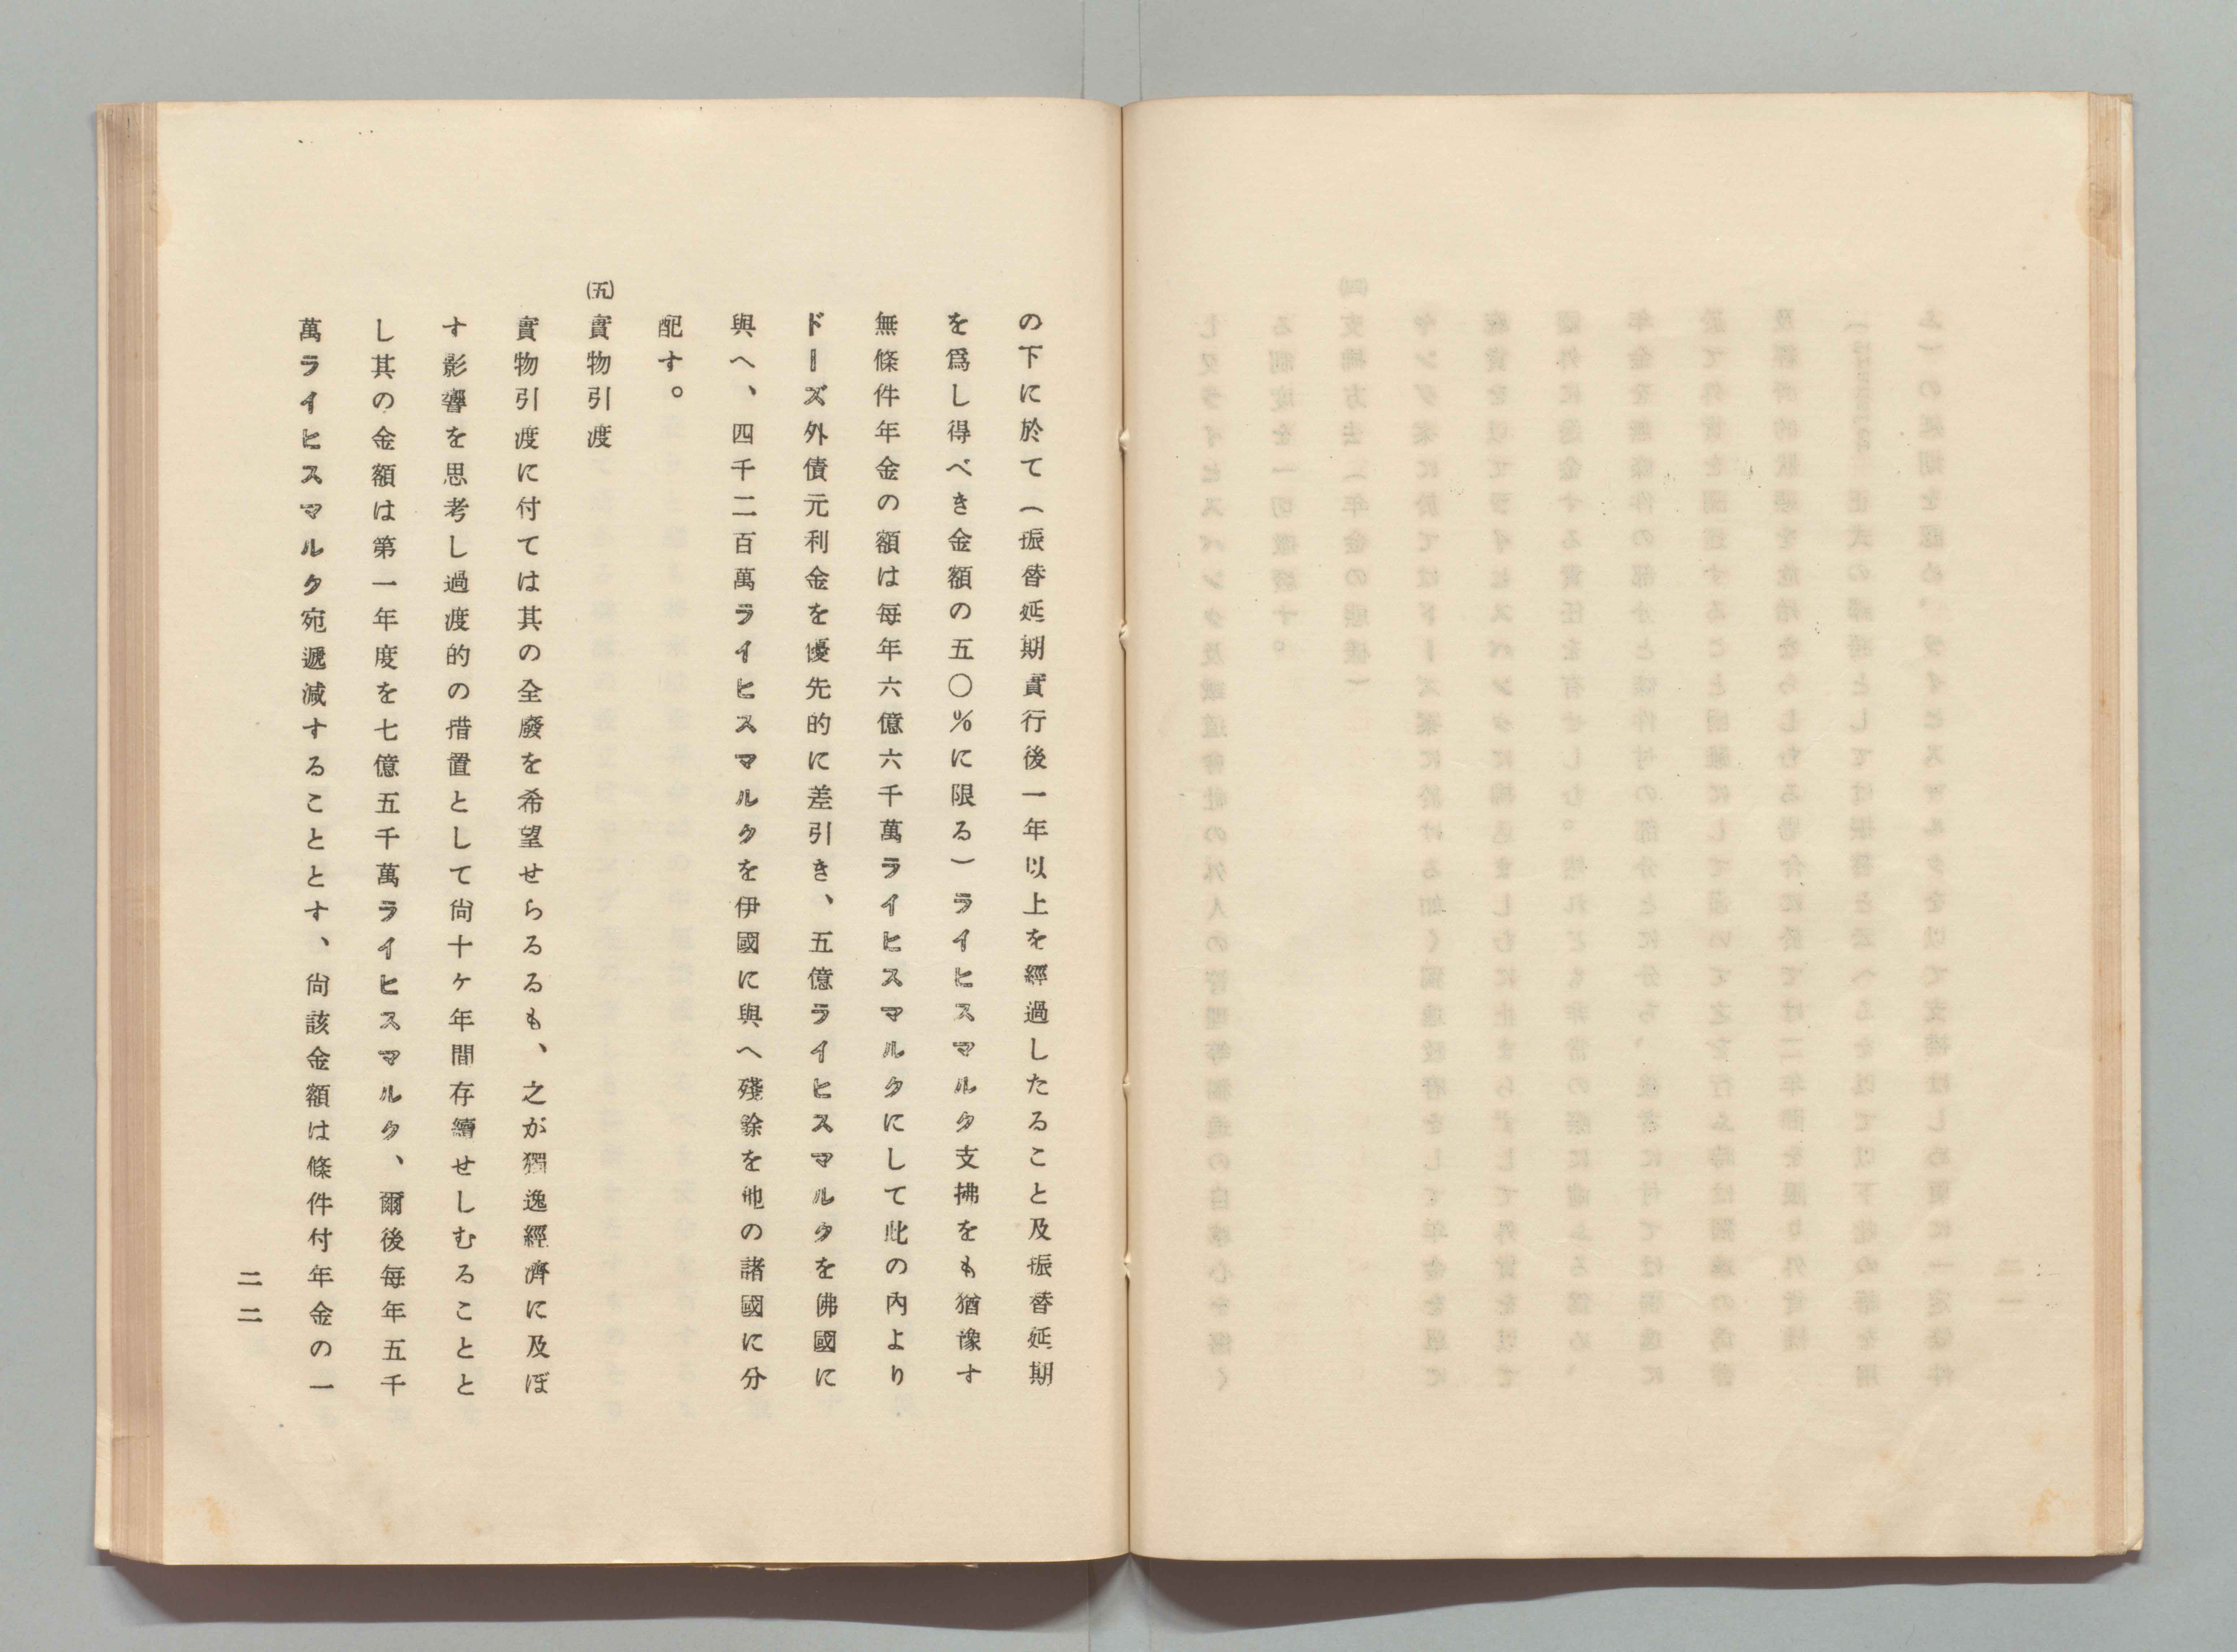 の下に於て(振替延期實行後一年以上を經過したること及振替延期
を爲し得べき金額の五〇%に限る)ライヒスマルク支拂をも猶豫す
無條件年金の額は每年六億六千萬ライヒスマルクにして此の內より
ドーズ外債元利金を優先的に差引き、五億ライヒスマルクを佛國に
與へ、四千二百萬ライヒスマルクを伊國に與へ殘餘を他の諸國に分
配す。
㈤實物引渡
實物引渡に付ては其の全廢を希望せらるるも、之が獨逸經濟に及ぼ
す影響を思考し過渡的の措置として尙十ケ年間存續せしむることと
し其の金額は第一年度を七億五千萬ライヒスマルク、爾後每年五千
萬ライヒスマルク宛遞減することとす、尙該金額は條件付年金の一
二二